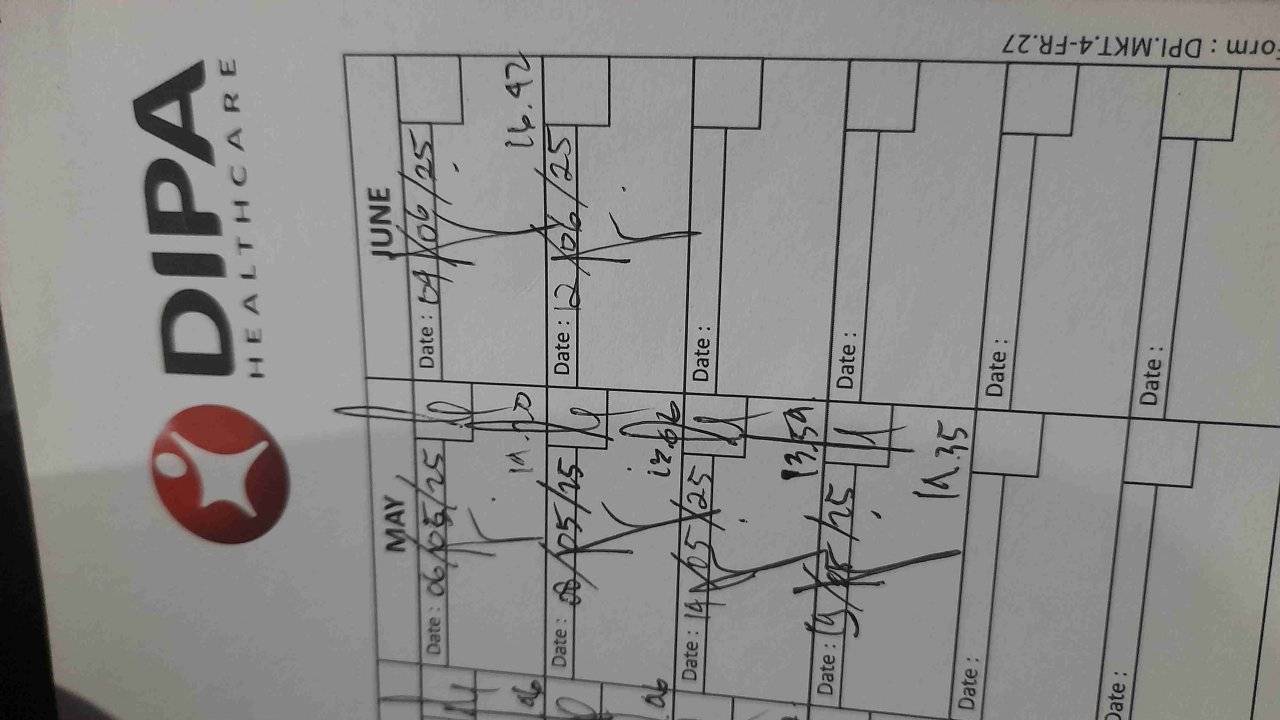 DIPA
HEALTHCARE
Form : DPI.MKT.4-FR.27
MAY
JUNE
Date : 06/05/25
Date : 04/06/25
16.42
Date : 08/05/25
Date : 12/06/25
Date : 14/05/25
13.59
Date :
Date : 19/05/25
19.35
Date :
Date :
Date :
Date :
Date :